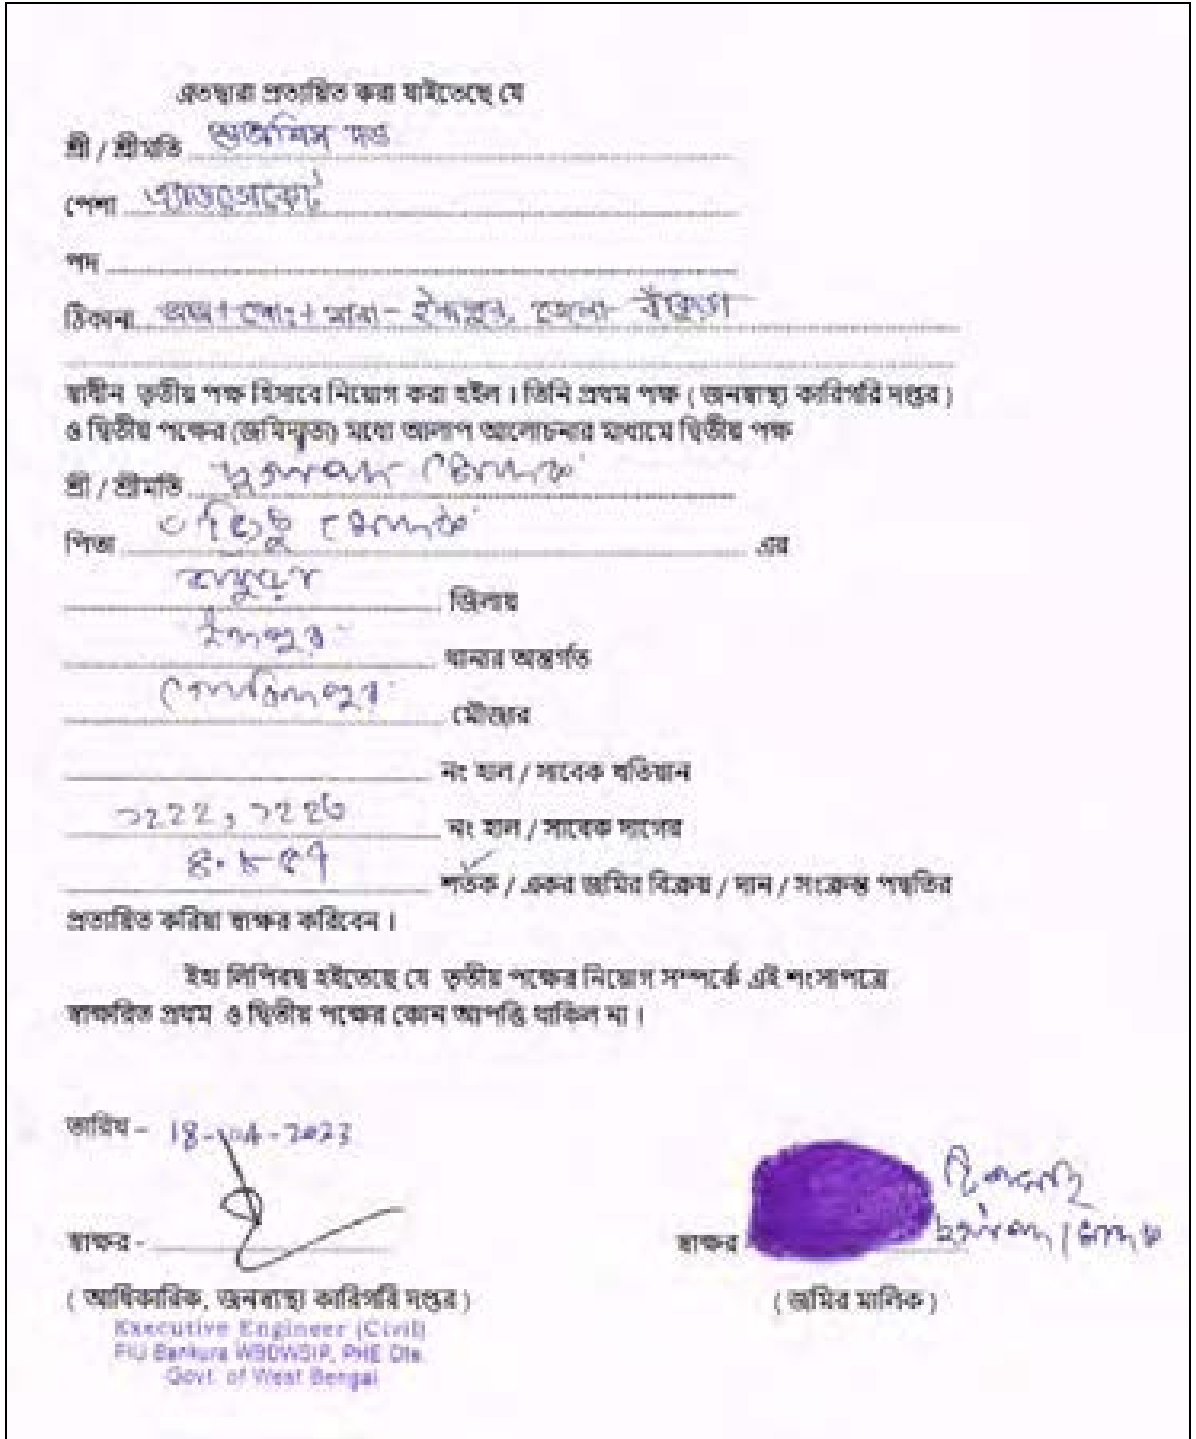 এতদ্বারা প্রত্যায়িত করা যাইতেছে যে
শ্রী / শ্রীমতি দত্ত
পেশা এ্যাডভোকেট
পদ
ঠিকানা থানা - ইন্দপুর, জেলা - বাঁকুড়া
স্বাধীন তৃতীয় পক্ষ হিসাবে নিয়োগ করা হইল । তিনি প্রথম পক্ষ ( জনস্বাস্থ্য কারিগরি দপ্তর )
ও দ্বিতীয় পক্ষের (জমিদাতা) মধ্যে আলাপ আলোচনার মাধ্যমে দ্বিতীয় পক্ষ
শ্রী / শ্রীমতি
পিতা এর
বাঁকুড়া জিলায়
ইন্দপুর থানার অন্তর্গত
মৌজার
নং হাল / সাবেক খতিয়ান
নং হাল / সাবেক দাগের
শতক / একর জমির বিক্রয় / দান / সংক্রান্ত পদ্ধতির
প্রত্যায়িত করিয়া স্বাক্ষর করিবেন ।
ইহা লিপিবদ্ধ হইতেছে যে তৃতীয় পক্ষের নিয়োগ সম্পর্কে এই শংসাপত্রে
স্বাক্ষরিত প্রথম ও দ্বিতীয় পক্ষের কোন আপত্তি থাকিল না ।
তারিখ - 18-04-2023
স্বাক্ষর -
স্বাক্ষর
( আধিকারিক, জনস্বাস্থ্য কারিগরি দপ্তর )
( জমির মালিক )
Executive Engineer (Civil)
PIU Bankura WBDWSIP, PHE Dte.
Govt. of West Bengal